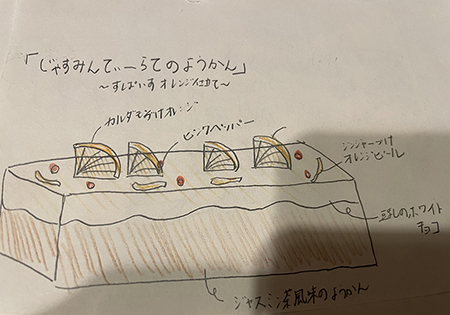 「じゃすみんてぃーらてのようかん」
〜すぱいす オレンジ仕立て〜
カルダモン付けオレンジ
ピンクペッパー
ジンジャーつけ
オレンジピール
蒸しのホワイト
チョコ
ジャスミン茶風味のようかん